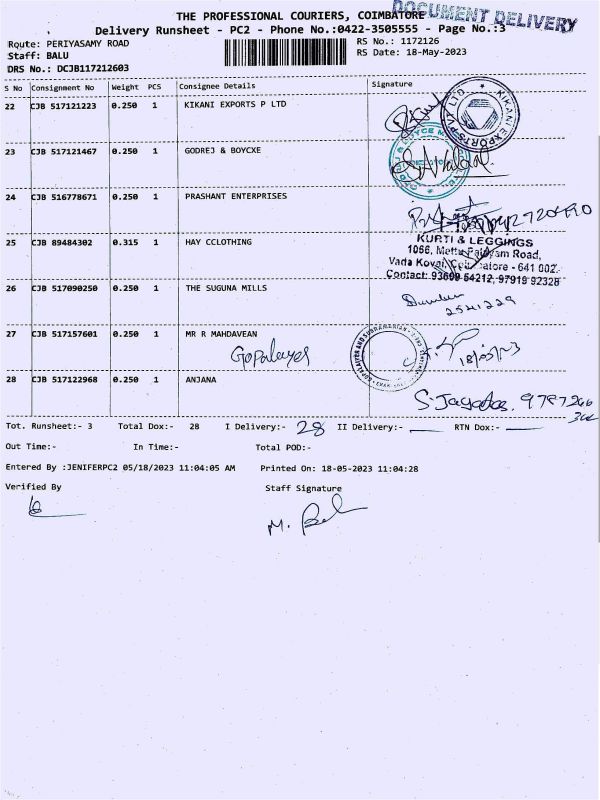 THE PROFESSIONAL COURIERS, COIMBATORE
DOCUMENT DELIVERY
Delivery Runsheet - PC2 - Phone No.:0422-3505555 - Page No.:3
Route: PERIYASAMY ROAD
RS No.: 1172126
Staff: BALU
RS Date: 18-May-2023
DRS No.: DCJB117212603
S No Consignment No Weight PCS Consignee Details Signature
22 CJB 517121223 0.250 1 KIKANI EXPORTS P LTD
KIKANI EXPORTS PVT LTD
23 CJB 517121467 0.250 1 GODREJ & BOYCXE
24 CJB 516778671 0.250 1 PRASHANT ENTERPRISES
25 CJB 89484302 0.315 1 HAY CCLOTHING
KURTI & LEGGINGS
1066, Mettu Road,
Vada Kovai, - 641 002.
Contact: 93699 54212, 97919 92328
26 CJB 517090250 0.250 1 THE SUGUNA MILLS
2541229
27 CJB 517157601 0.250 1 MR R MAHDAVEAN
Gopalayer
18/05/23
28 CJB 517122968 0.250 1 ANJANA
S. 9787266
Tot. Runsheet:- 3 Total Dox:- 28 I Delivery:- 28 II Delivery:- RTN Dox:-
Out Time:- In Time:- Total POD:-
Entered By :JENIFERPC2 05/18/2023 11:04:05 AM Printed On: 18-05-2023 11:04:28
Verified By Staff Signature